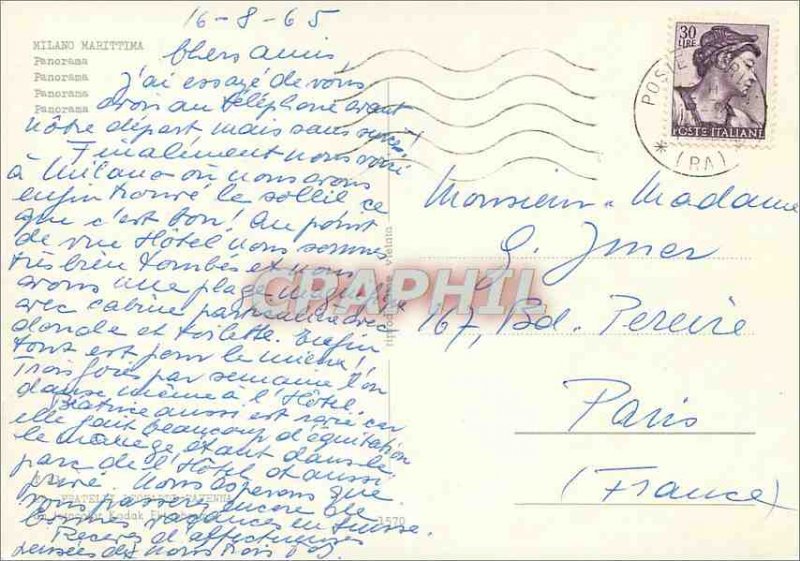 16-8-65
MILANO MARITTIMA
Panorama
Panorama
Panorama
Panorama
Chers amis
j'ai essayé de vous
avoir au téléphone avant
nôtre départ mais sans succès!
Finalement nous voici
à Milano où nous avons
enfin trouvé le soleil ce
que c'est bon! Au point
de vue Hôtel nous sommes
très bien tombés et nous
avons une plage magnifique
avec cabine particulière avec
douche et toilette. Enfin
tout est pour le mieux!
Trois fois par semaine l'on
danse même à l'Hôtel.
Béatrice aussi est ravie car
elle fait beaucoup d'équitation
le manège étant dans le
parc de l'Hôtel et aussi
privé. Nous espérons que
vous passez encore de
bonnes vacances en Suisse.
Recevez d'affectueuses
pensées de nous trois
FRATELLI RAVENNA
Kodak
1570
CRAPHIL
vietata
30
LIRE
POSTE ITALIANE
POSTE
* (RA) *
Monsieur Madame
G.
167, Bd. Pereire
Paris
(France)